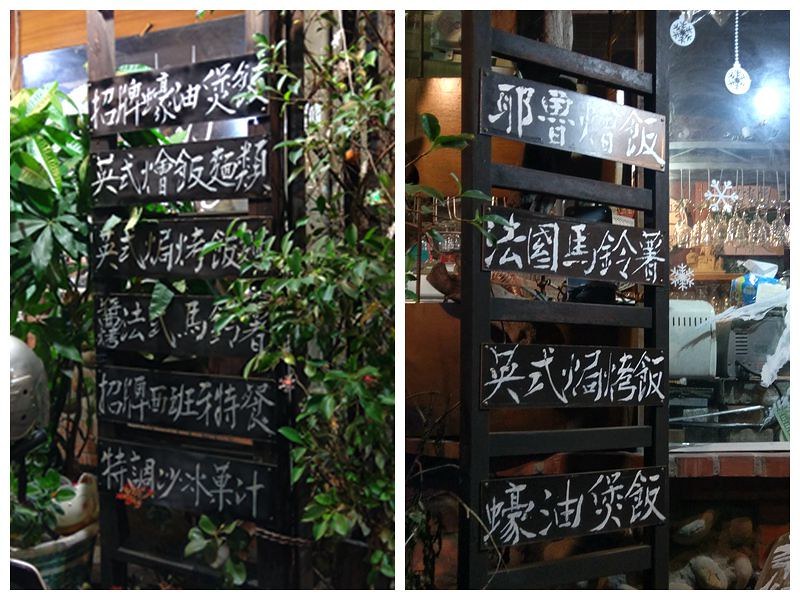 招牌蠔油煲飯
英式燴飯麵類
英式焗烤飯麵
法式馬鈴薯
招牌西班牙特餐
特調沙冰菓汁
耶魯燴飯
法國馬鈴薯
英式焗烤飯
蠔油煲飯